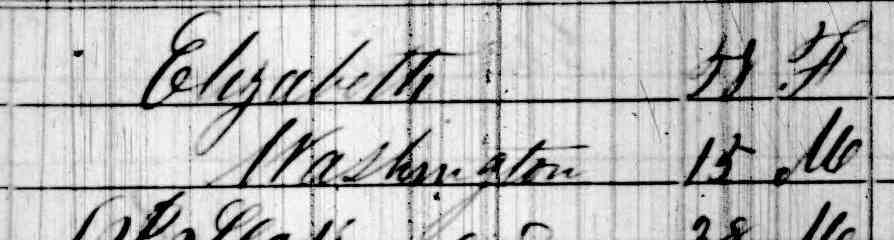 Elizabeth F
Washington 15 M
28 M